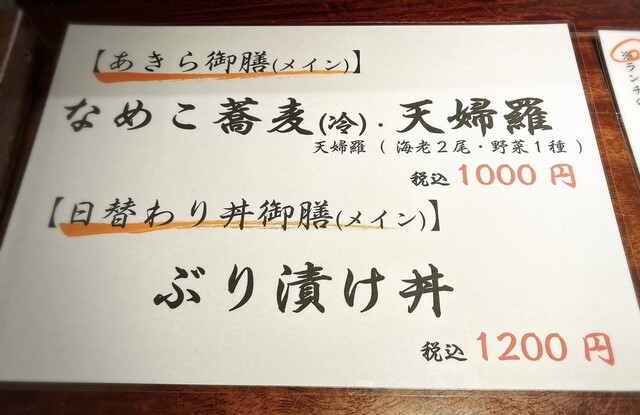 【あきら御膳(メイン)】
なめこ蕎麦(冷)・天婦羅
天婦羅 ( 海老2尾・野菜1種 )
税込 1000 円
【日替わり丼御膳(メイン)】
ぶり漬け丼
税込 1200 円
※ランチの